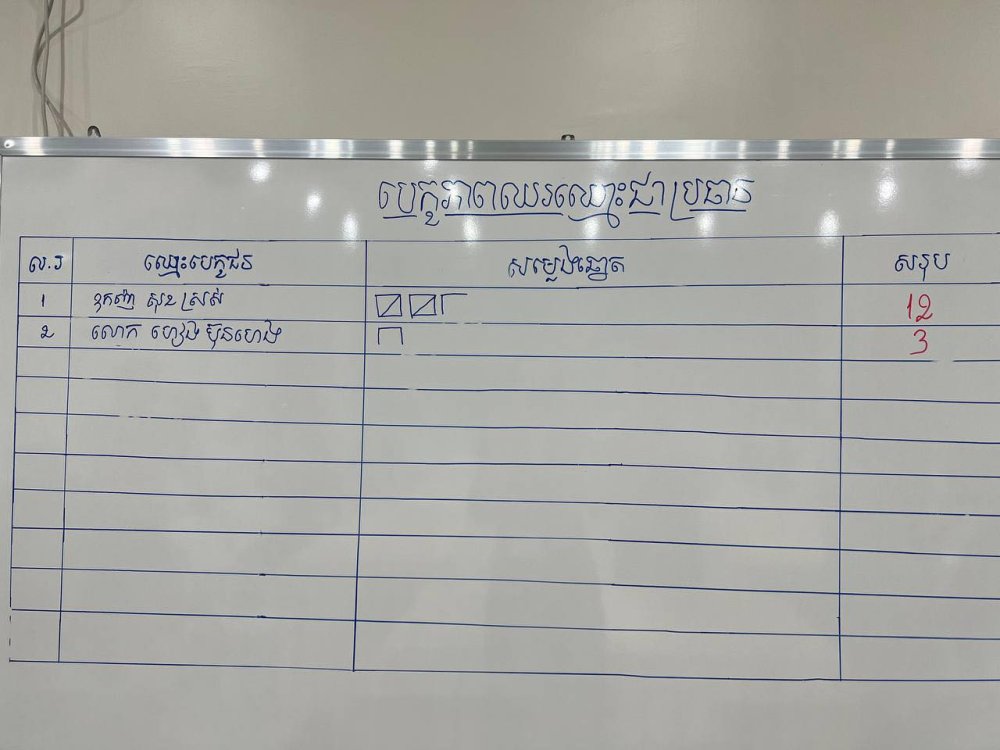 បេក្ខភាពឈរឈ្មោះជាប្រធាន
ល.រ ឈ្មោះបេក្ខជន សម្លេងឆ្នោត សរុប
1 ឧកញ៉ា សុខ ស្រស់ 12
2 លោក ហៀង ប៊ុនហេង 3